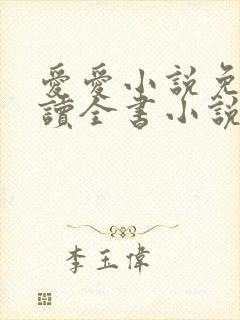 愛愛小說免
讀全書小說
李玉偉